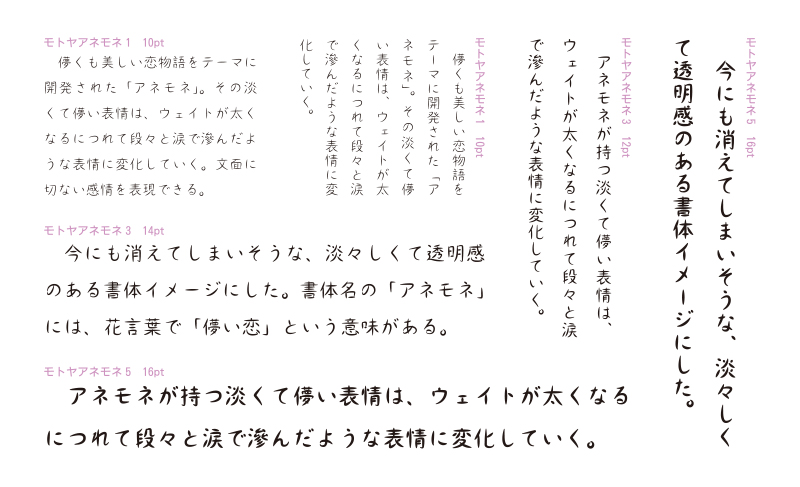 モトヤアネモネ1 10pt
儚くも美しい恋物語をテーマに
開発された「アネモネ」。その淡
くて儚い表情は、ウェイトが太く
なるにつれて段々と涙で滲んだよ
うな表情に変化していく。文面に
切ない感情を表現できる。
モトヤアネモネ1 10pt
儚くも美しい恋物語を
テーマに開発された「ア
ネモネ」。その淡くて儚
い表情は、ウェイトが太
くなるにつれて段々と涙
で滲んだような表情に変
化していく。
モトヤアネモネ3 12pt
アネモネが持つ淡くて儚い表情は、
ウェイトが太くなるにつれて段々と涙
で滲んだような表情に変化していく。
モトヤアネモネ5 16pt
今にも消えてしまいそうな、淡々しく
て透明感のある書体イメージにした。
モトヤアネモネ3 14pt
今にも消えてしまいそうな、淡々しくて透明感
のある書体イメージにした。書体名の「アネモネ」
には、花言葉で「儚い恋」という意味がある。
モトヤアネモネ5 16pt
アネモネが持つ淡くて儚い表情は、ウェイトが太くなる
につれて段々と涙で滲んだような表情に変化していく。